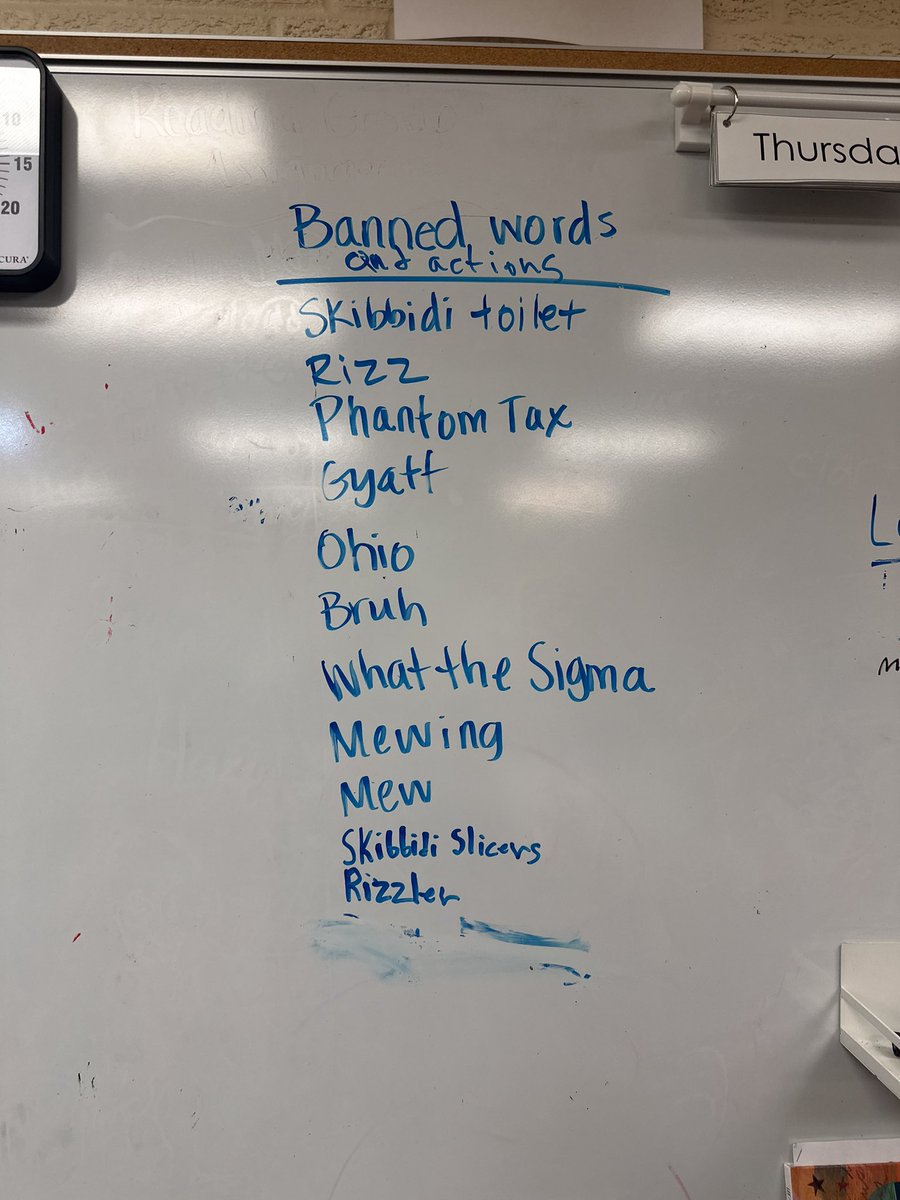 10
15
20
CURA
Thursda
Banned words
and actions
Skibbidi toilet
Rizz
Phantom Tax
Gyatt
Ohio
Bruh
What the Sigma
Mewing
Mew
Skibbidi Slicers
Rizzler